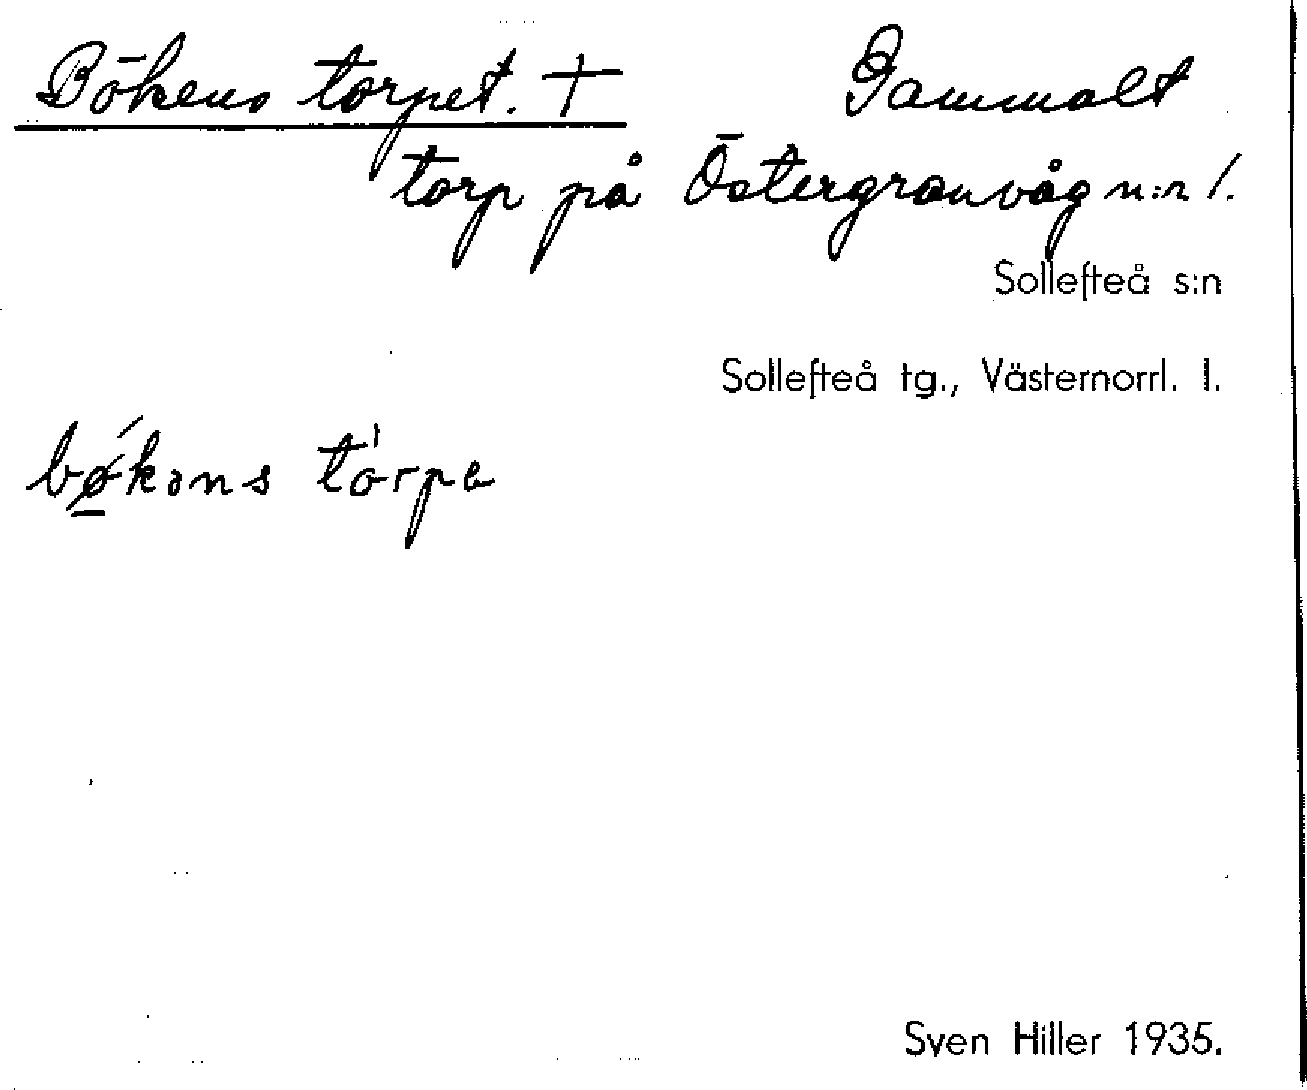 Bökens torpet. + Gammalt
torp på Östergranvåg n:r 1.
Sollefteå s:n
Sollefteå tg., Västernorrl. l.
bǿ̲kəns tórpe
Sven Hiller 1935.